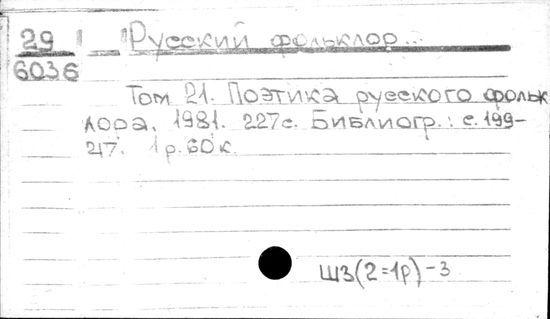 29 Русский фольклор...
6036
Том 21. Поэтика русского фольк
лора. 1981. 227с. Библиогр.: с. 199-
217. 1р.60к.
Ш3(2=1р)-3